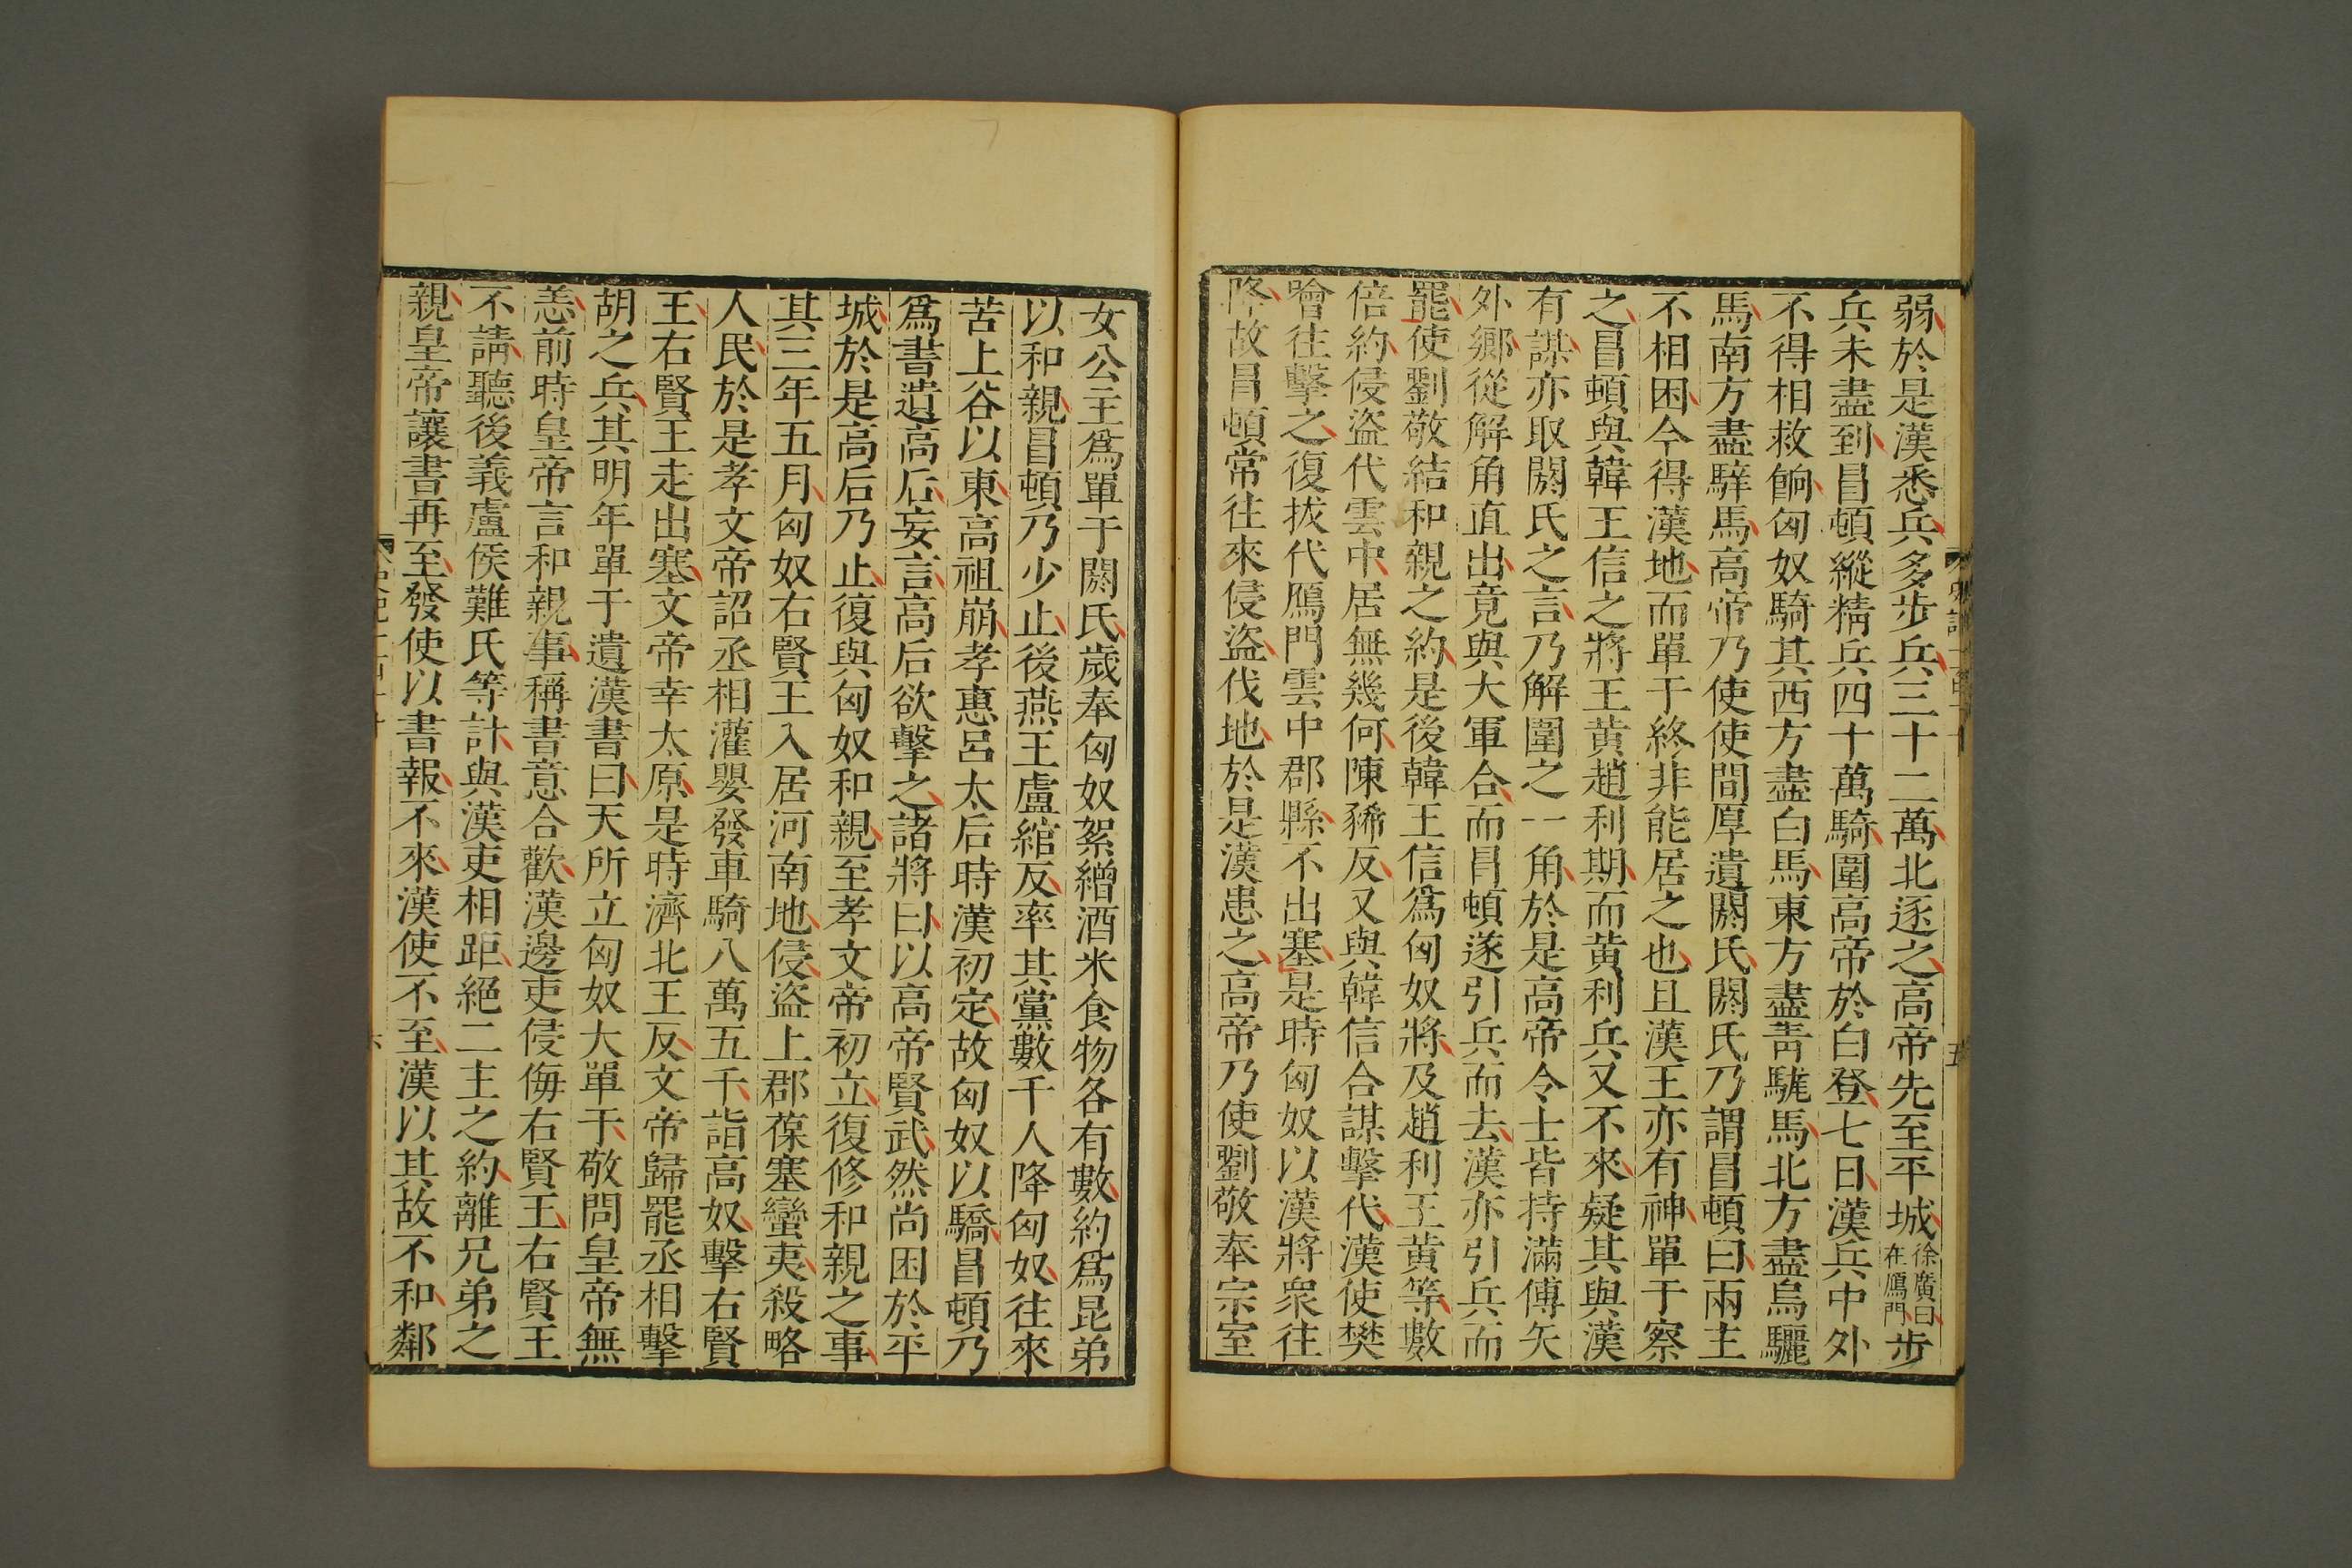 弱於是漢悉兵多步兵三十二萬北逐之高帝先至平城徐廣曰在鴈門步
兵未盡到冒頓縱精兵四十萬騎圍高帝於白登七日漢兵中外
不得相救餉匈奴騎其西方盡白馬東方盡青駹馬北方盡烏驪
馬南方盡騂馬高帝乃使使間厚遺閼氏閼氏乃謂冒頓曰兩主
不相困今得漢地而單于終非能居之也且漢王亦有神單于察
之冒頓與韓王信之將王黃趙利期而黃利兵又不來疑其與漢
有謀亦取閼氏之言乃解圍之一角於是高帝令士皆持滿傅矢
外鄉從解角直出竟與大軍合而冒頓遂引兵而去漢亦引兵而
罷使劉敬結和親之約是後韓王信爲匈奴將及趙利王黃等數
倍約侵盜代雲中居無幾何陳豨反又與韓信合謀擊代漢使樊
噲往擊之復拔代鴈門雲中郡縣不出塞是時匈奴以漢將衆往
降故冒頓常往來侵盜代地於是漢患之高帝乃使劉敬奉宗室
女公主爲單于閼氏歲奉匈奴絮繒酒米食物各有數約爲昆弟
以和親冒頓乃少止後燕王盧綰反率其黨數千人降匈奴往來
苦上谷以東高祖崩孝惠呂太后時漢初定故匈奴以驕冒頓乃
爲書遺高后妄言高后欲擊之諸將曰以高帝賢武然尚困於平
城於是高后乃止復與匈奴和親至孝文帝初立復修和親之事
其三年五月匈奴右賢王入居河南地侵盜上郡葆塞蠻夷殺略
人民於是孝文帝詔丞相灌嬰發車騎八萬五千詣高奴擊右賢
王右賢王走出塞文帝幸太原是時濟北王反文帝歸罷丞相擊
胡之兵其明年單于遺漢書曰天所立匈奴大單于敬問皇帝無
恙前時皇帝言和親事稱書意合歡漢邊吏侵侮右賢王右賢王
不請聽後義盧侯難氏等計與漢吏相距絕二主之約離兄弟之
親皇帝讓書再至發使以書報不來漢使不至漢以其故不和鄰